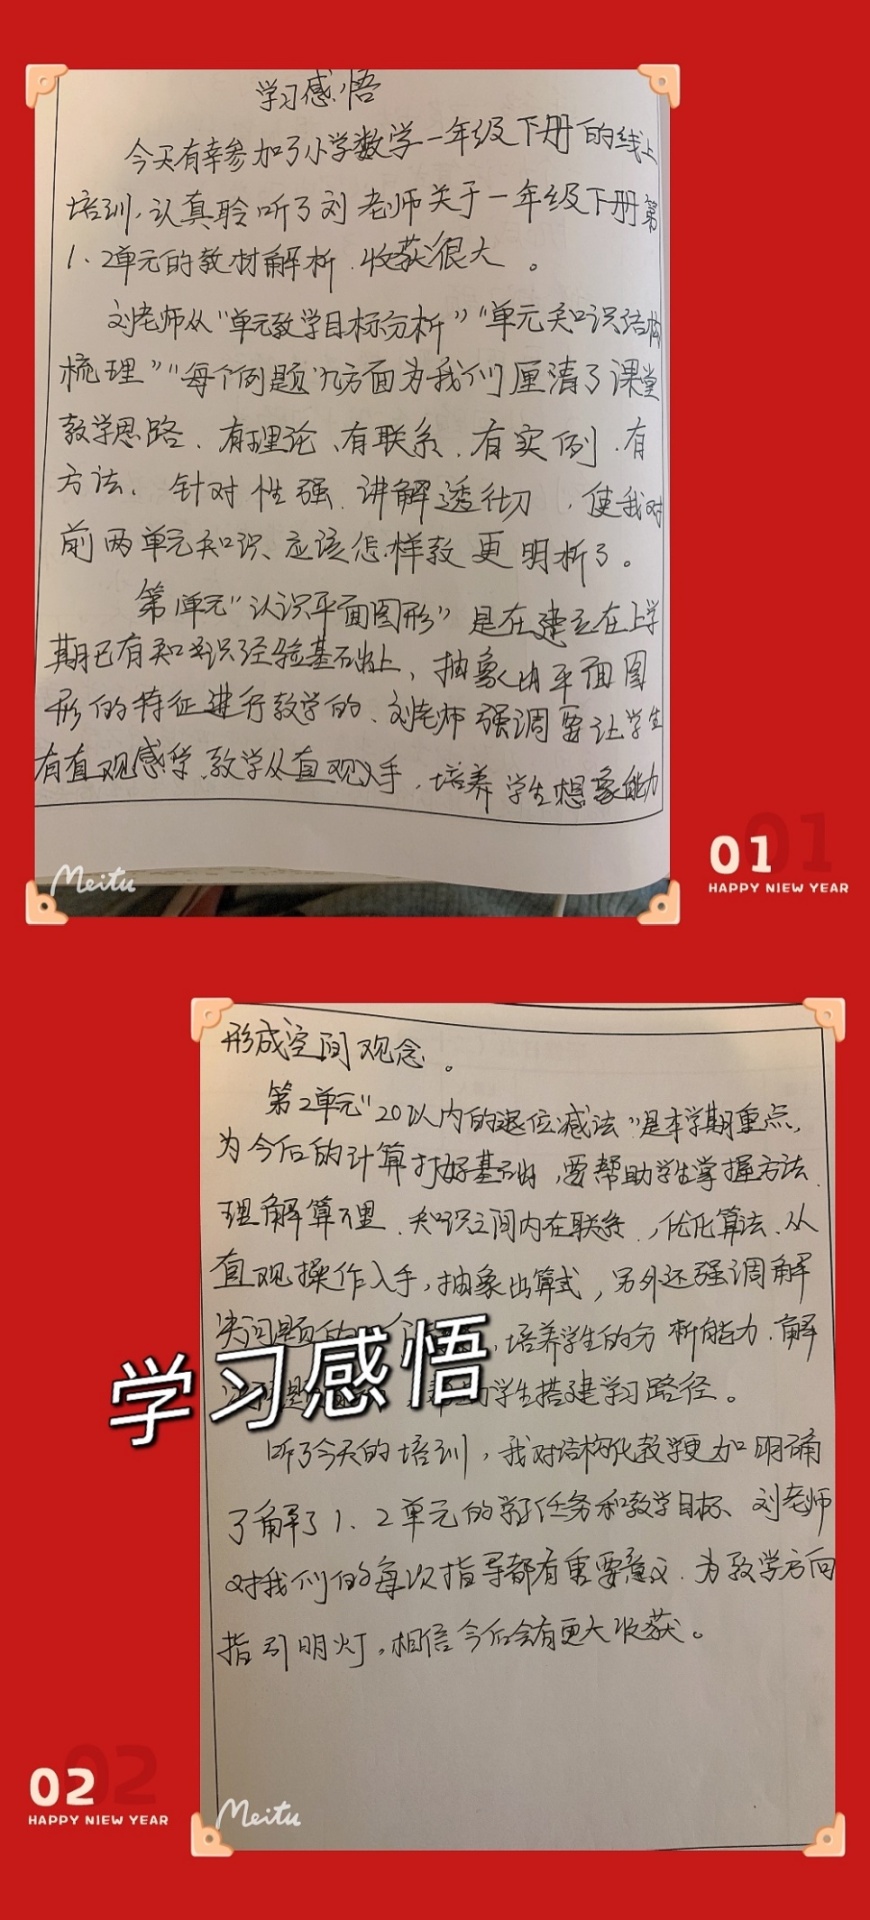 学习感悟
今天有幸参加了小学数学一年级下册的线上
培训,认真聆听了刘老师关于一年级下册第
1、2单元的教材解析、收获很大。
刘老师从“单元教学目标分析”“单元知识结构
梳理”“每个例题”几方面为我们厘清了课堂
教学思路、有理论、有联系、有实例、有
方法、针对性强、讲解透彻,使我对
前两单元知识、应该怎样教更明析了。
第1单元“认识平面图形”是在建立在上学
期已有知识经验基础上,抽象出平面图
形的特征进行教学的、刘老师强调要让学生
有直观感学、教学从直观入手,培养学生想象能力
Meitu
01
HAPPY NIEW YEAR
形成空间观念。
第2单元“20以内的退位减法”是本学期重点,
为今后的计算打好基础,要帮助学生掌握方法、
理解算理、知识之间内在联系,优化算法、从
直观操作入手,抽象出算式,另外还强调解
决问题的,培养学生的分析能力、解
学生搭建学习路径。
学习感悟
听了今天的培训,我对结构化教学更加明确
了解了1、2单元的学习任务和教学目标、刘老师
对我们的每次指导都有重要意义、为教学方向
指引明灯,相信今后会有更大收获。
02
HAPPY NIEW YEAR
Meitu